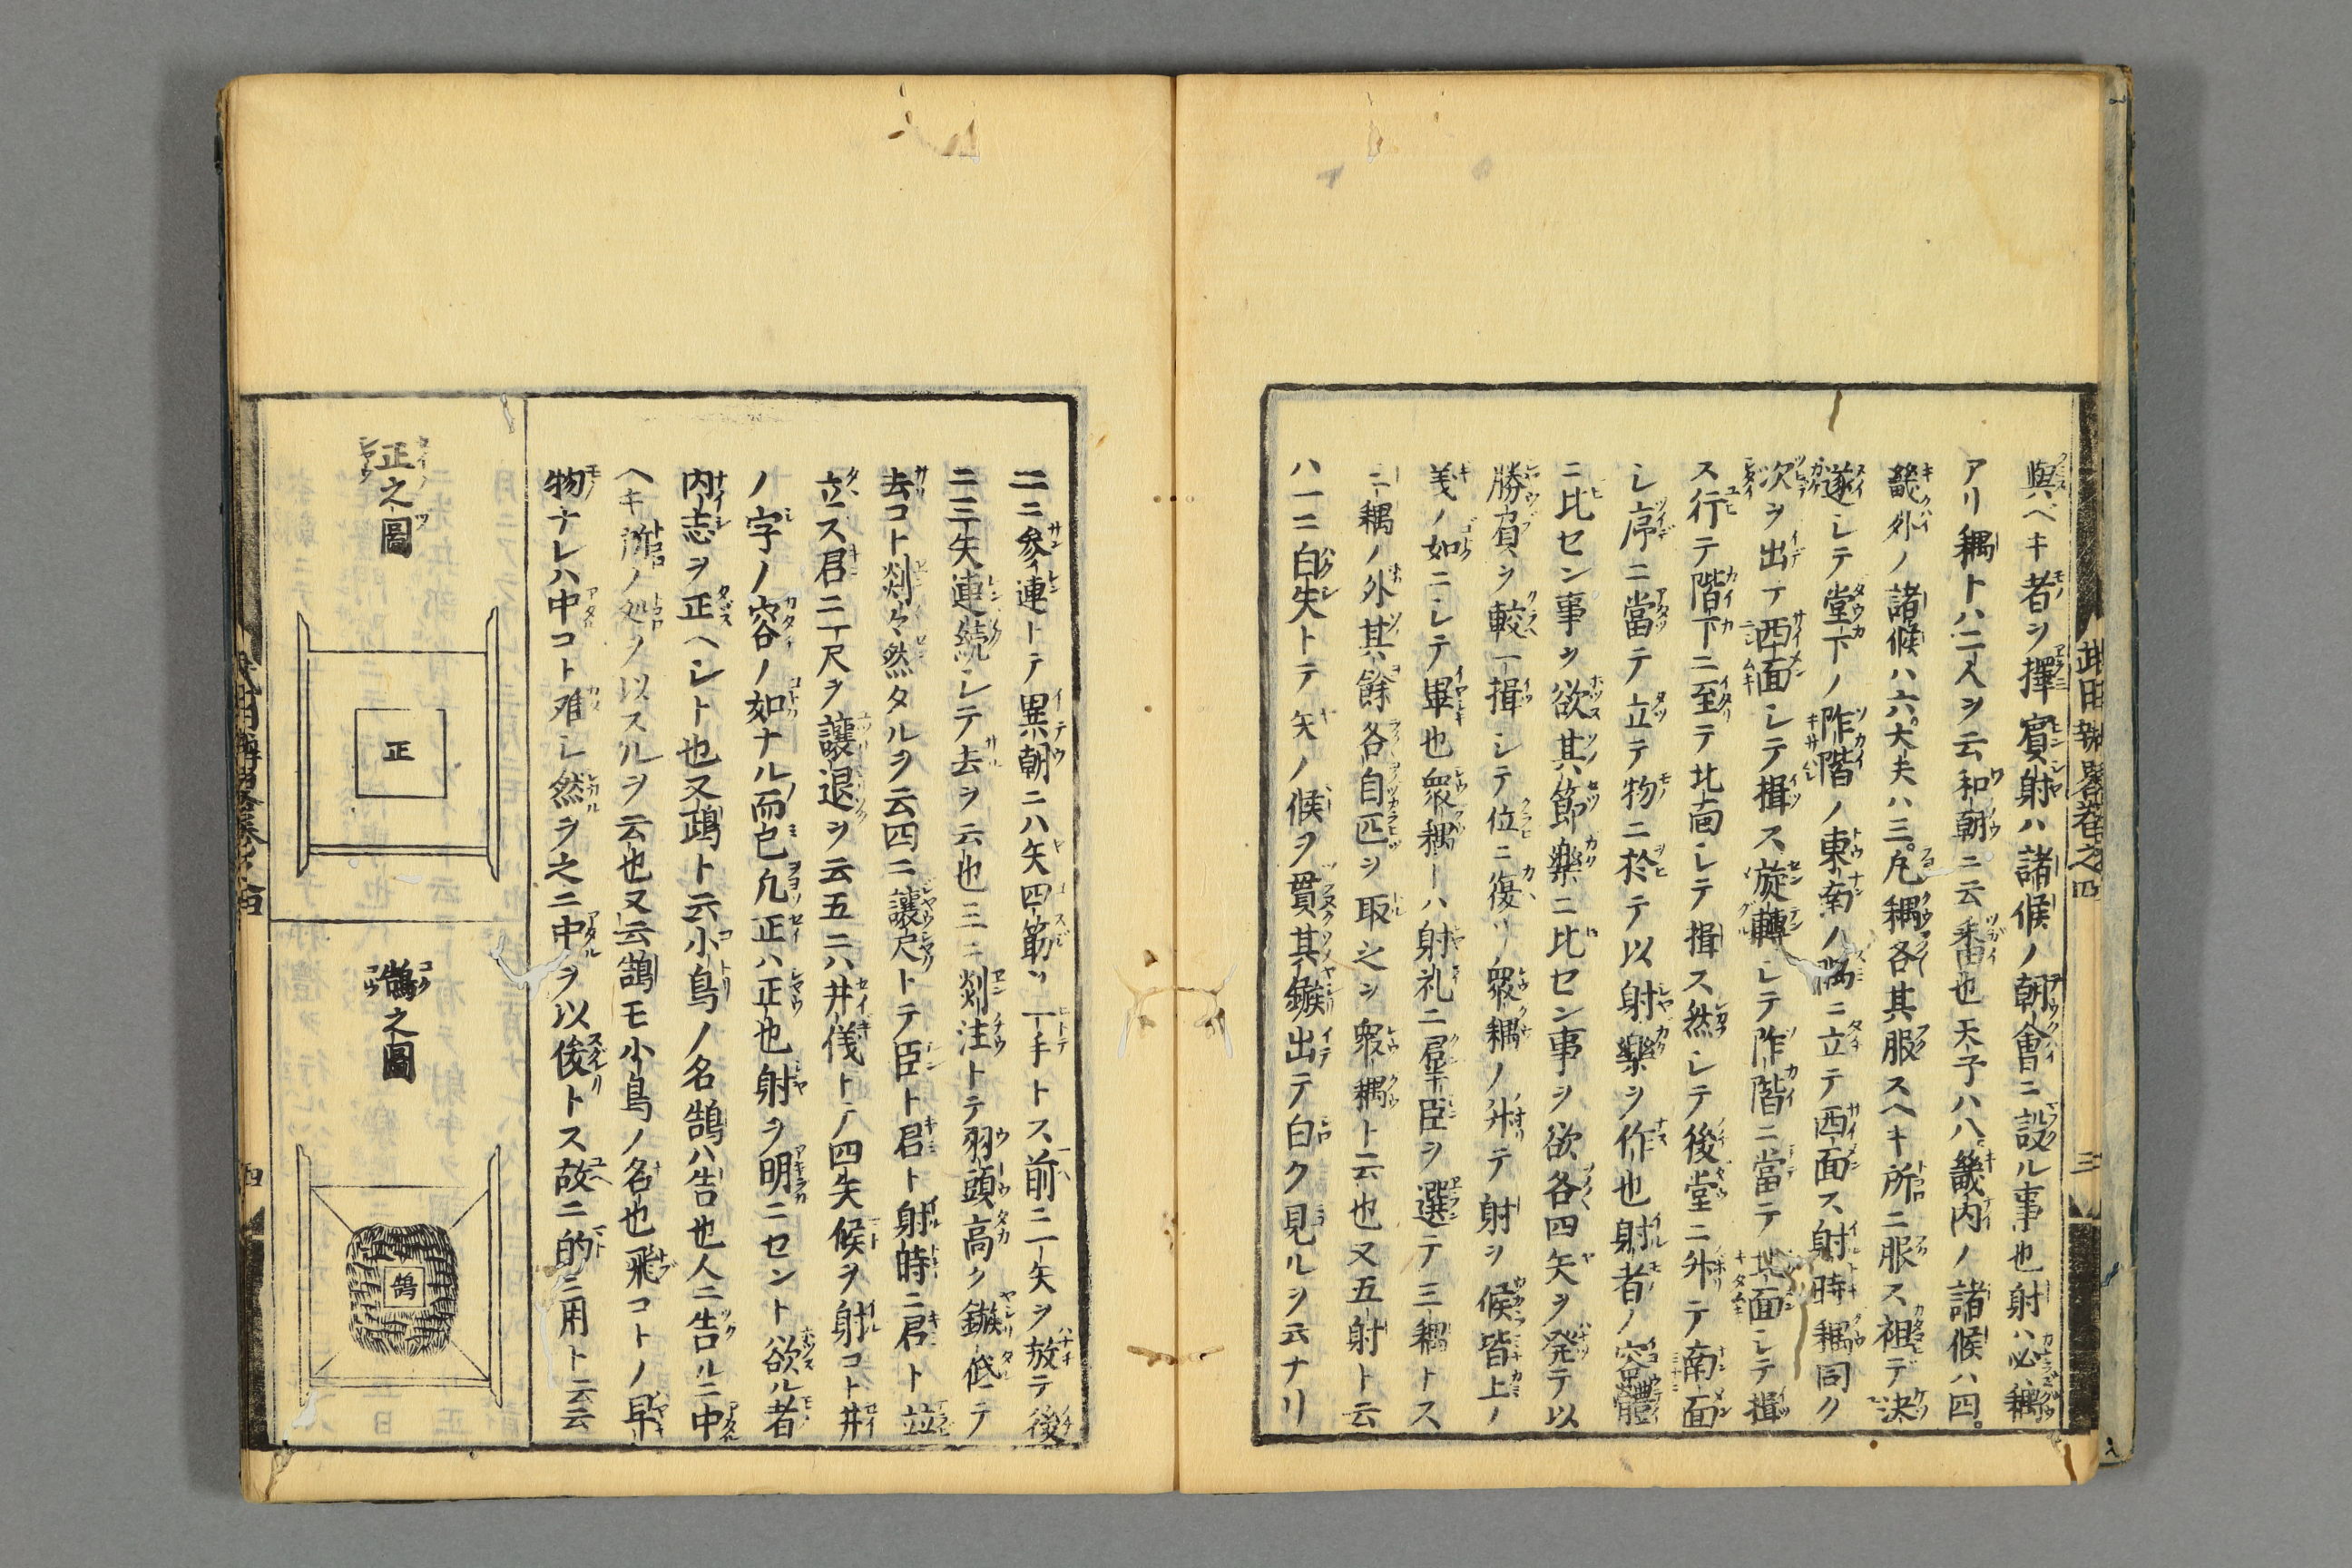 與ベキ者ヲ擇賓射ハ諸候ノ朝會ニ設ル事也射ハ必耦
アリ耦トハ二人ヲ云和朝ニ云乗也天子ハ八畿内ノ諸候ハ四
畿外ノ諸候ハ六大夫ハ三凡耦各其服スヘキ所ニ服ス袒デ決
遂シテ堂下ノ阼階ノ東南ノ隅ニ立テ西面ス射時耦同ク
次ヲ出テ西面シテ揖ス旋轉シテ阼階ニ當テ北面シテ揖
ス行テ階下ニ至テ北面シテ揖ス然シテ後堂ニ升テ南面
シ序ニ當テ立テ物ニ於テ以射樂ヲ作也射者ノ容體
ニ比セン事ヲ欲其節樂ニ比セン事ヲ欲各四矢ヲ発テ以
勝負ヲ較一揖シテ位ニ復リ衆耦ノ升テ射ヲ候皆上ノ
義ノ如ニシテ畢也衆耦ハ射礼ニ羣臣ヲ選テ三耦トス
三耦ノ外其餘各自匹ヲ取之ヲ衆耦ト云也又五射ト云
ハ一ニ白矢トテ矢ノ候ヲ貫其鏃出テ白ク見ルヲ云ナリ
二ニ參連トテ異朝ニハ矢四筋ヲ一手トス前ニ一矢ヲ放テ後
ニ三矢連続シテ去ヲ云也三ニ剡注トテ羽頭高ク鏃低テ
去コト剡々然タルヲ云四ニ讓尺トテ臣ト君ト射時ニ君ト竝
立ス君ニ一尺ヲ讓退ヲ云五ニハ井儀トテ四矢候ヲ射コト井
ノ字ノ容ノ如ナル而已凡正ハ正也射ヲ明ニセント欲ル者
内志ヲ正ヘシト也又鴊ト云小鳥ノ名鵠ハ告也人ニ告ルニ中
ヘキ所ノ処ノ以スルヲ云也又云鵠モ小鳥ノ名也飛コトノ早
物ナレハ中コト难シ然ヲ之ニ中ヲ以俊トス故ニ的ニ用ト云云
正之圖
正
鵠之圖
鵠